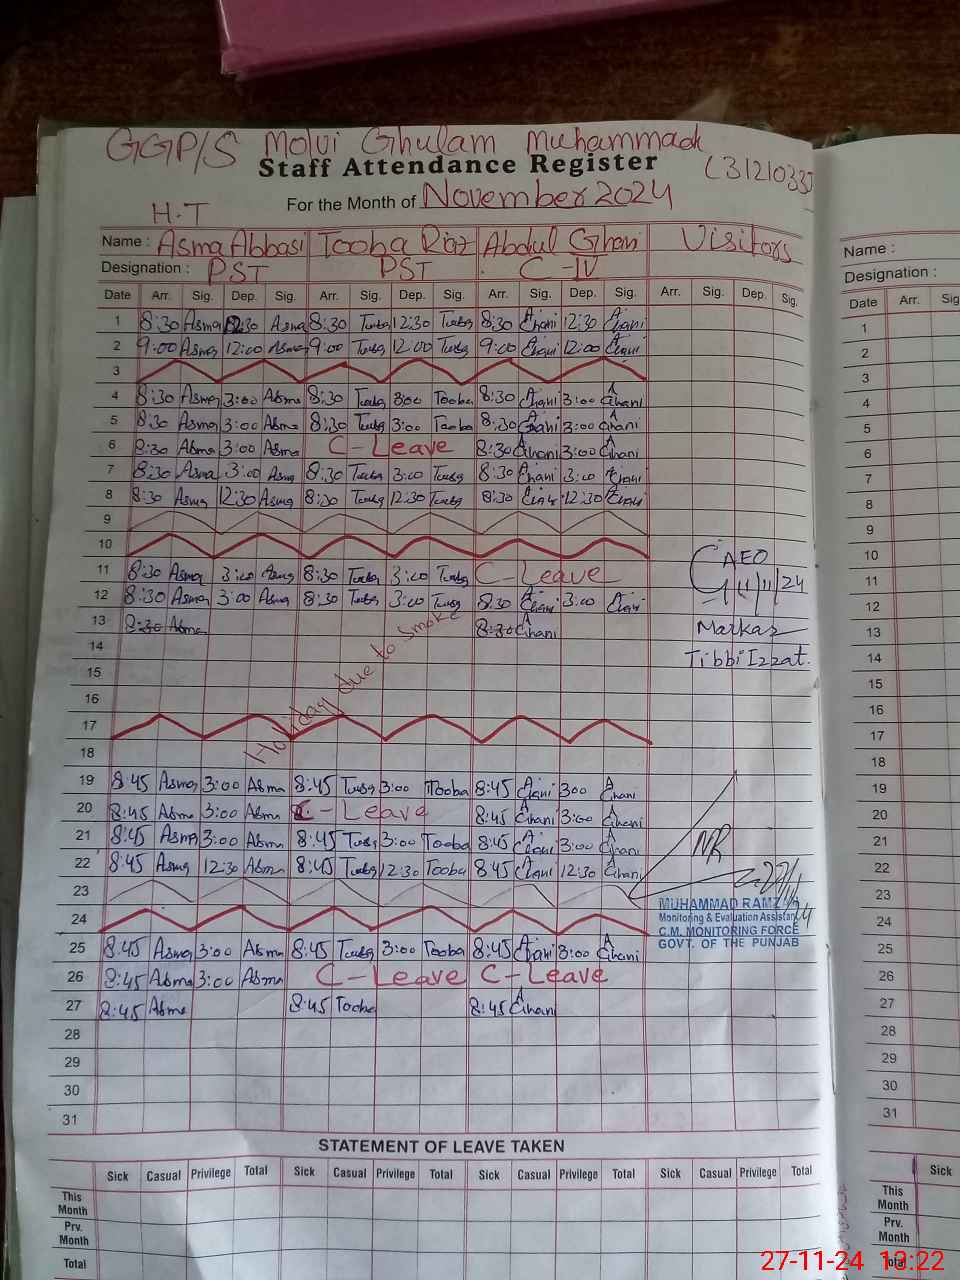 GGP/S Molvi Ghulam Muhammad
Staff Attendance Register
(3121033
For the Month of November 2024
H.T
Name : Asma Abbasi Tooba Riaz Abdul Ghani Visitors
Designation : PST PST C-IV
Date Arr. Sig. Dep. Sig. Arr. Sig. Dep. Sig. Arr. Sig. Dep. Sig. Arr. Sig. Dep. Sig.
1 8:30 Asma 12:30 Asma 8:30 Tooba 12:30 Tooba 8:30 Ghani 12:30 Ghani
2 9:00 Asma 12:00 Asma 9:00 Tooba 12:00 Tooba 9:00 Ghani 12:00 Ghani
3
4 8:30 Asma 3:00 Asma 8:30 Tooba 3:00 Tooba 8:30 Ghani 3:00 A Ghani
5 8:30 Asma 3:00 Asma 8:30 Tooba 3:00 Tooba 8:30 Ghani 3:00 Ghani
6 8:30 Asma 3:00 Asma C-Leave 8:30 Ghani 3:00 Ghani
7 8:30 Asma 3:00 Asma 8:30 Tooba 3:00 Tooba 8:30 Ghani 3:00 Ghani
8 8:30 Asma 12:30 Asma 8:30 Tooba 12:30 Tooba 8:30 Ghani 12:30 Ghani
9
10
11 8:30 Asma 3:00 Asma 8:30 Tooba 3:00 Tooba C-Leave
12 8:30 Asma 3:00 Asma 8:30 Tooba 3:00 Tooba 8:30 Ghani 3:00 Ghani
13 8:30 Asma 8:30 Ghani
14
15
16
17
18
Holiday due to Smoke
19 8:45 Asma 3:00 Asma 8:45 Tooba 3:00 Tooba 8:45 Ghani 300 A Ghani
20 8:45 Asma 3:00 Asma C-Leave 8:45 A Ghani 3:00 Ghani
21 8:45 Asma 3:00 Asma 8:45 Tooba 3:00 Tooba 8:45 Ghani 3:00 Ghani
22 8:45 Asma 12:30 Asma 8:45 Tooba 12:30 Tooba 8:45 Ghani 12:30 Ghani
23
24
25 8:45 Asma 3:00 Asma 8:45 Tooba 3:00 Tooba 8:45 Ghani 3:00 A Ghani
26 8:45 Asma 3:00 Asma C-Leave C-Leave
27 8:45 Asma 8:45 Tooba 8:45 A Ghani
28
29
30
31
AEO
11/11/24
Markaz
Tibbi Izzat.
NR
MUHAMMAD RAMZ
Monitoring & Evaluation Assistant
C.M. MONITORING FORCE
GOVT. OF THE PUNJAB
STATEMENT OF LEAVE TAKEN
Sick Casual Privilege Total Sick Casual Privilege Total Sick Casual Privilege Total Sick Casual Privilege Total
This Month
Prv. Month
Total
Name :
Designation :
Date Arr. Sig
1
2
3
4
5
6
7
8
9
10
11
12
13
14
15
16
17
18
19
20
21
22
23
24
25
26
27
28
29
30
31
Sick
This Month
Prv. Month
Total
27-11-24 13:22